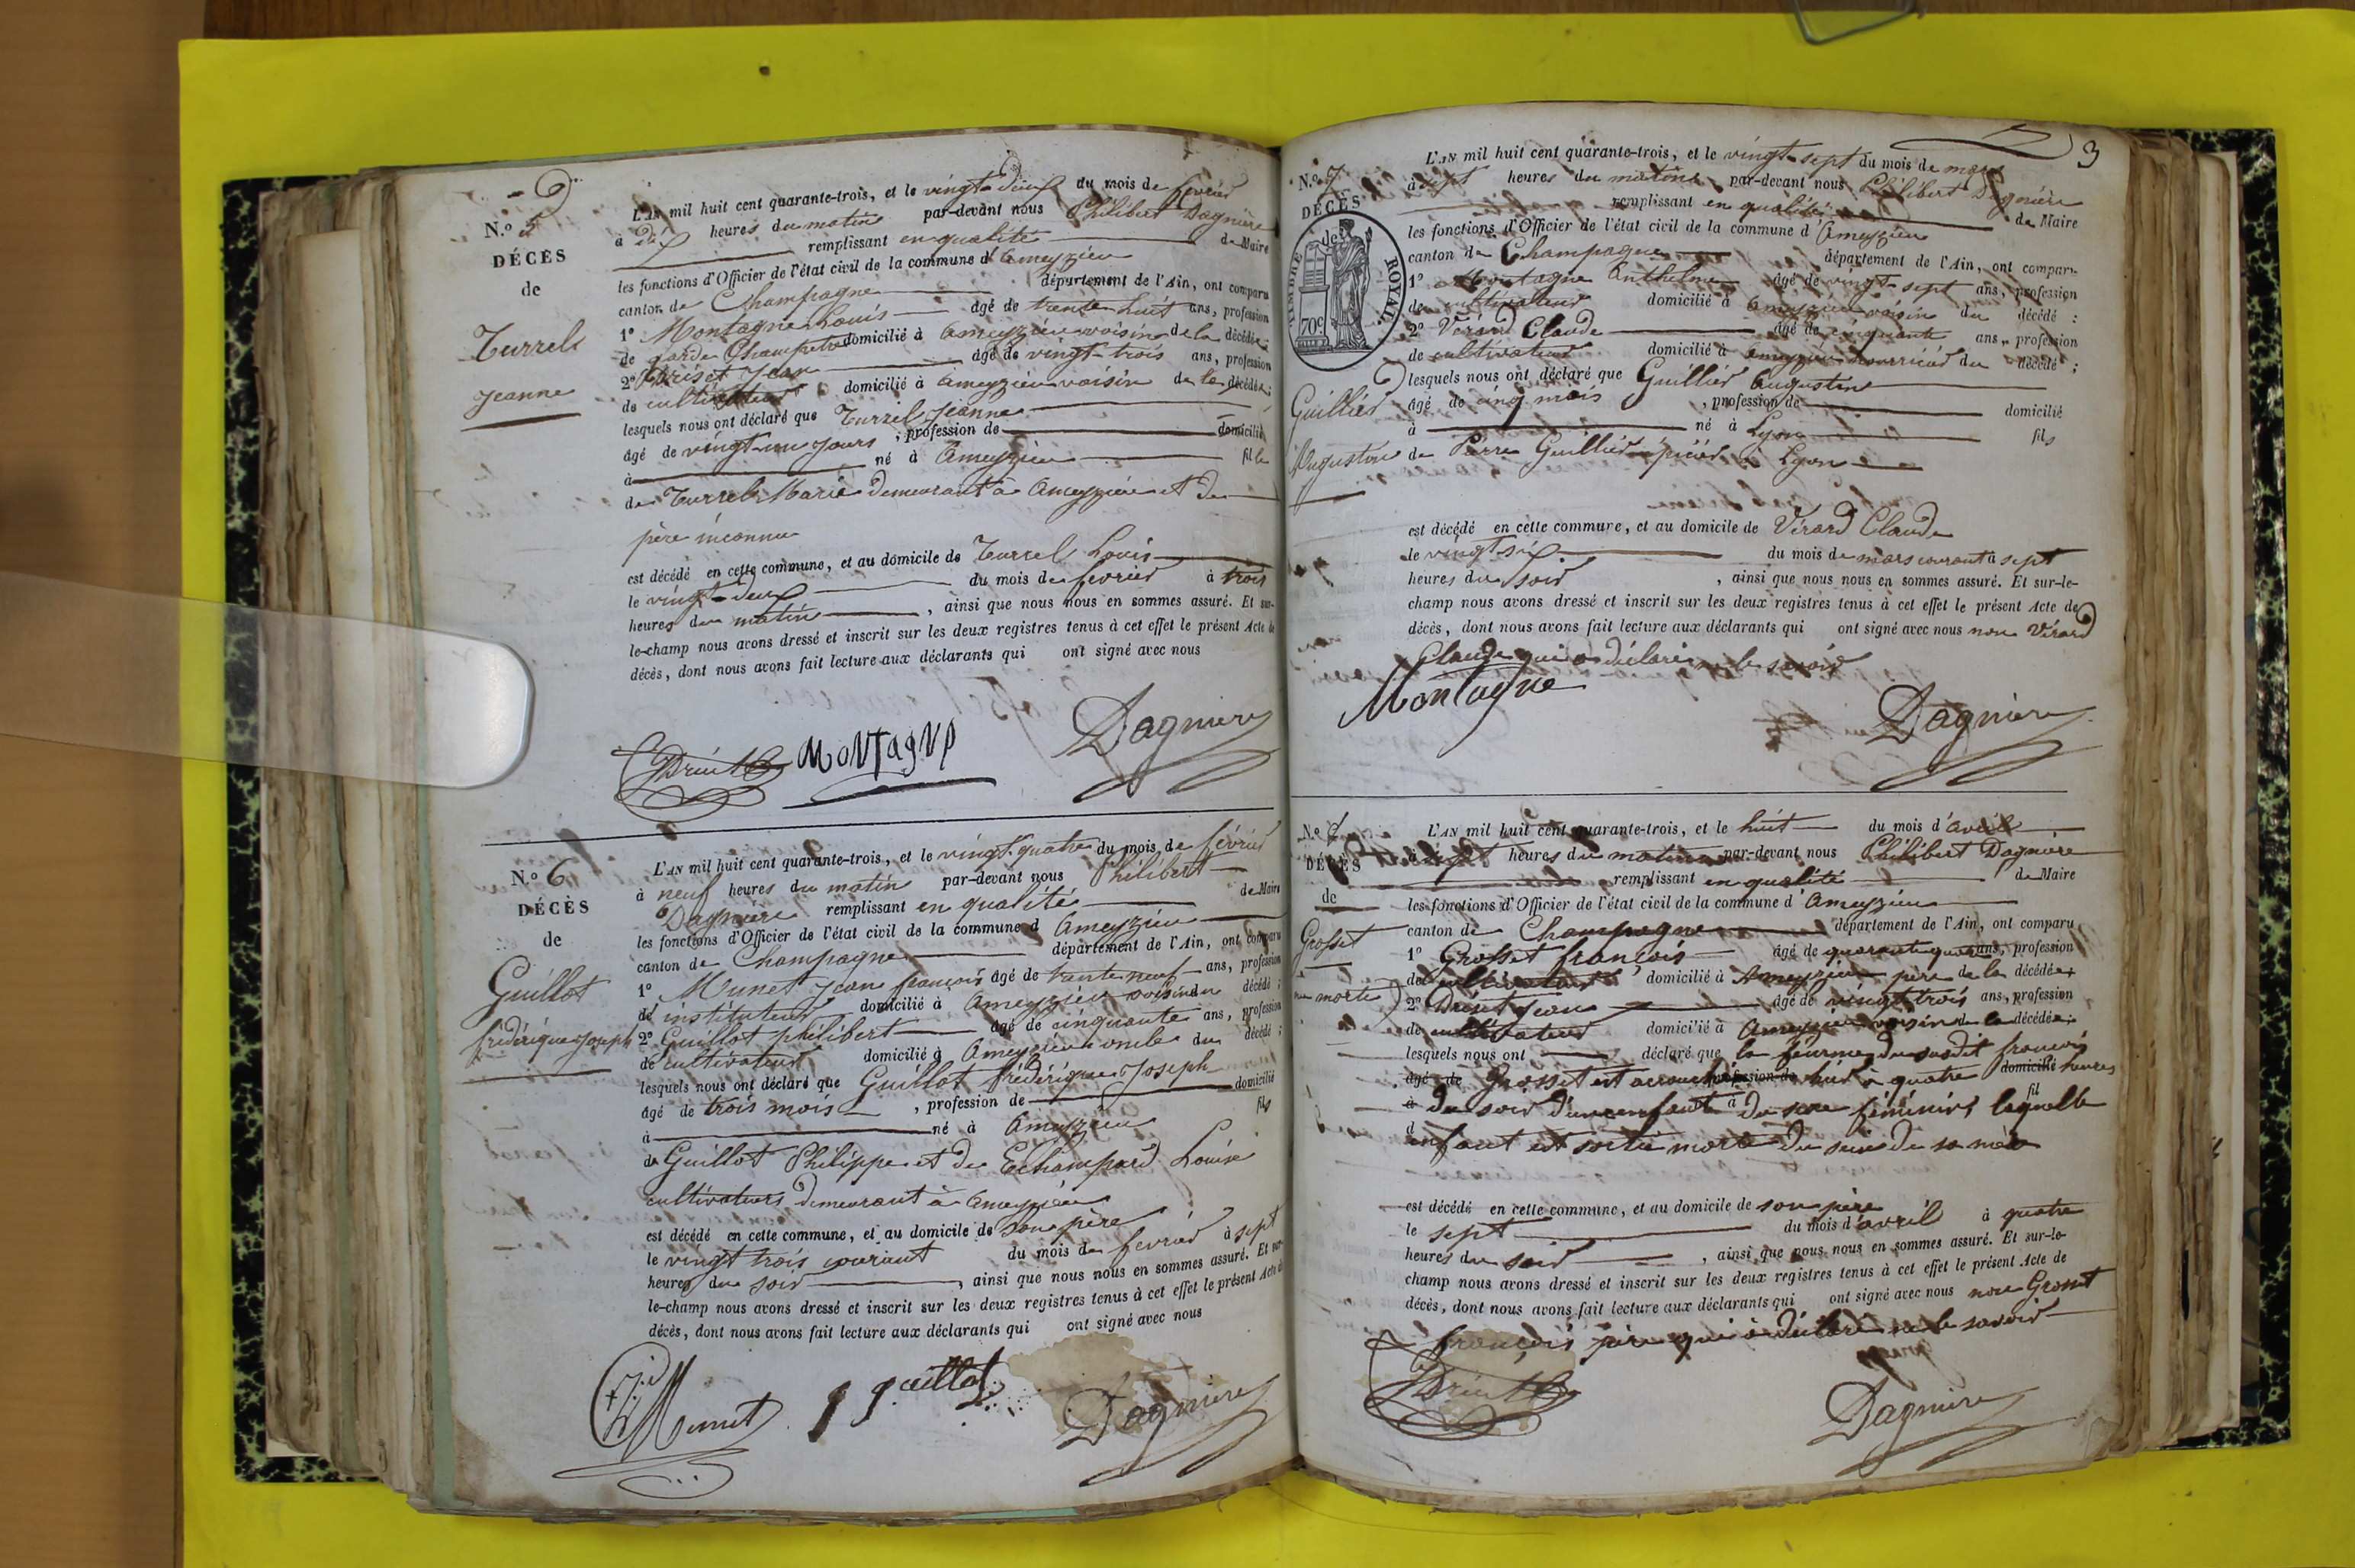 N.° 5
DÉCÈS
de
Turrel
Jeanne
L'AN mil huit cent quarante-trois, et le vingt-deux du mois de février
à dix heures du matin par-devant nous Philibert Dagnière
remplissant en qualité de Maire
les fonctions d'Officier de l'état civil de la commune d'Ameyzieu
canton de Champagne département de l'Ain, ont comparu
1° Montagne Louis âgé de trente huit ans, profession
de garde Champetre domicilié à Ameyzieu voisin de la décédée;
2° Driset Jean âgé de vingt-trois ans, profession
de cultivateur domicilié à Ameyzieu voisin de la décédée;
lesquels nous ont déclaré que Turrel Jeanne
âgé de vingt-un jours, profession de domicilié
à né à Ameyzieu fille
de Turrel Marie demeurant à Ameyzieu et de
père inconnu
est décédé en cette commune, et au domicile de Turrel Louis
le vingt-deux du mois de février à trois
heures du matin, ainsi que nous nous en sommes assuré. Et sur-
le-champ nous avons dressé et inscrit sur les deux registres tenus à cet effet le présent Acte de
décès, dont nous avons fait lecture aux déclarants qui ont signé avec nous
MONTAGNE Dagnière
N.° 6
DÉCÈS
de
Guillot
frédérique Joseph
L'AN mil huit cent quarante-trois, et le vingt-quatre du mois de février
à neuf heures du matin par-devant nous Philibert
Dagnière remplissant en qualité de Maire
les fonctions d'Officier de l'état civil de la commune d'Ameyzieu
canton de Champagne département de l'Ain, ont comparu
1° Munet Jean françois âgé de trente neuf ans, profession
de instituteur domicilié à Ameyzieu voisin du décédé;
2° Guillot philibert âgé de cinquante ans, profession
de cultivateur domicilié à Ameyzieu oncle du décédé;
lesquels nous ont déclaré que Guillot frédérique Joseph
âgé de trois mois, profession de domicilié
à né à Ameyzieu fils
de Guillot Philippe et de Echampard Louise
cultivateurs demeurant à Ameyzieu
est décédé en cette commune, et au domicile de son père
le vingt trois courant du mois de février à sept
heures du soir, ainsi que nous nous en sommes assuré. Et sur-
le-champ nous avons dressé et inscrit sur les deux registres tenus à cet effet le présent Acte de
décès, dont nous avons fait lecture aux déclarants qui ont signé avec nous
Munet guillot Dagnière
3
N.° 7
DÉCÈS
de
TIMBRE ROYAL
70c
Guillier
Augustin
L'AN mil huit cent quarante-trois, et le vingt-sept du mois de mars
à sept heures du matin par-devant nous Philibert Dagnière
remplissant en qualité de Maire
les fonctions d'Officier de l'état civil de la commune d'Ameyzieu
canton de Champagne département de l'Ain, ont comparu
1° Montagne Anthelme âgé de vingt-sept ans, profession
de cultivateur domicilié à Ameyzieu voisin du décédé;
2° Vérard Claude âgé de cinquante ans, profession
de cultivateur domicilié à Ameyzieu nourricier du décédé;
lesquels nous ont déclaré que Guillier Augustin
âgé de cinq mois, profession de domicilié
à né à Lyon fils
de Pierre Guillier épicier à Lyon
est décédé en cette commune, et au domicile de Vérard Claude
le vingt-six du mois de mars courant à sept
heures du soir, ainsi que nous nous en sommes assuré. Et sur-le-
champ nous avons dressé et inscrit sur les deux registres tenus à cet effet le présent Acte de
décès, dont nous avons fait lecture aux déclarants qui ont signé avec nous non Vérard
Claude qui a déclaré ne le savoir
Montagne Dagnière
N.° 8
DÉCÈS
de
Grosset
née morte
L'AN mil huit cent quarante-trois, et le huit du mois d'avril
à sept heures du matin par-devant nous Philibert Dagnière
remplissant en qualité de Maire
les fonctions d'Officier de l'état civil de la commune d'Ameyzieu
canton de Champagne département de l'Ain, ont comparu
1° Grosset françois âgé de quarante quatre ans, profession
de cultivateur domicilié à Ameyzieu père de la décédée
2° Driset Jean âgé de vingt trois ans, profession
de cultivateur domicilié à Ameyzieu voisin de la décédée;
lesquels nous ont déclaré que la femme du susdit françois
âgé de Grosset est accouchée profession de hier à quatre domicilié heures
à du soir d'une enfant à du sexe féminin, laquelle fil
d enfant est sortie morte du sein de sa mère
est décédé en cette commune, et au domicile de son père
le sept du mois d'avril à quatre
heures du soir, ainsi que nous nous en sommes assuré. Et sur-le-
champ nous avons dressé et inscrit sur les deux registres tenus à cet effet le présent Acte de
décès, dont nous avons fait lecture aux déclarants qui ont signé avec nous non Grosset
françois père qui a déclaré ne le savoir
Dagnière